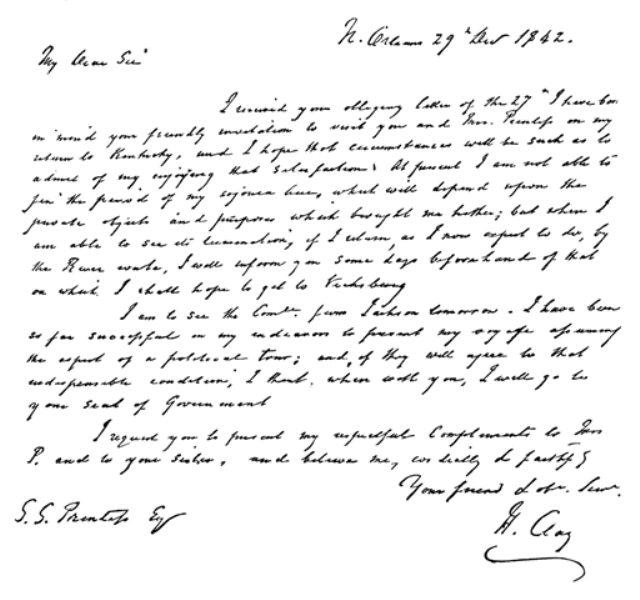 N. Orleans 29th Dec 1842.
My Dear Sir
I received your obliging letter of the 27th I have borne
in mind your friendly invitation to visit you and Mrs. Prentiss on my
return to Kentucky, and I hope that circumstances will be such as to
admit of my enjoying that satisfaction. At present I am not able to
fix the period of my sojourn here, which will depend upon the
private objects and purposes which brought me hither; but when I
am able to see its termination, if I return, as I now expect to do, by
the River route, I will inform you some days beforehand of that
on which I shall hope to get to Vicksburg
I am to see the Comee. from Jackson tomorrow. I have been
so far successful in my endeavors to prevent my voyage assuming
the aspect of a political tour; and, if they will agree to that
indispensable condition, I think, when with you, I will go to
your Seat of Government
I request you to present my respectful Compliments to Mrs
P. and to your Sister, and believe me, cordially & faithfy
Your friend & obt. Servt.
S. S. Prentiss Esq
H. Clay